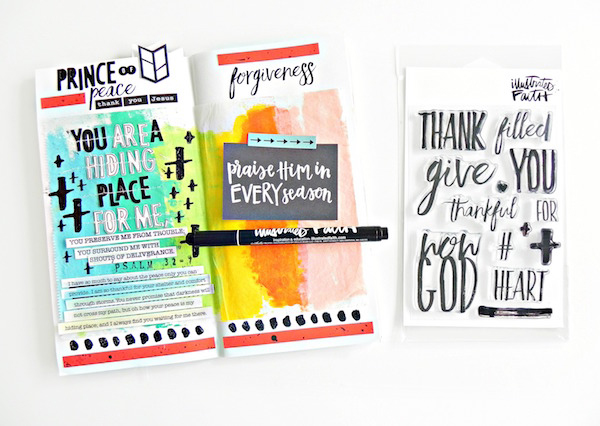 PRINCE OF
peace
thank you Jesus
YOU ARE A
HIDING
PLACE
FOR ME,
YOU PRESERVE ME FROM TROUBLE,
YOU SURROUND ME WITH
SHOUTS OF DELIVERANCE.
PSALM 32-7
I have so much to say about the peace only you can
provide. I am so thankful for your shelter and comfort
through storms. You never promised that darkness would
not cross my path, but oh how your peace is my
hiding place, and I always find you waiting for me there.
forgiveness
praise Him in
EVERY season
illustrated FAITH
inspiration & education illustratedfaith.com
illustrated
FAITH
THANK filled
give YOU
thankful FOR
now #
GOD HEART